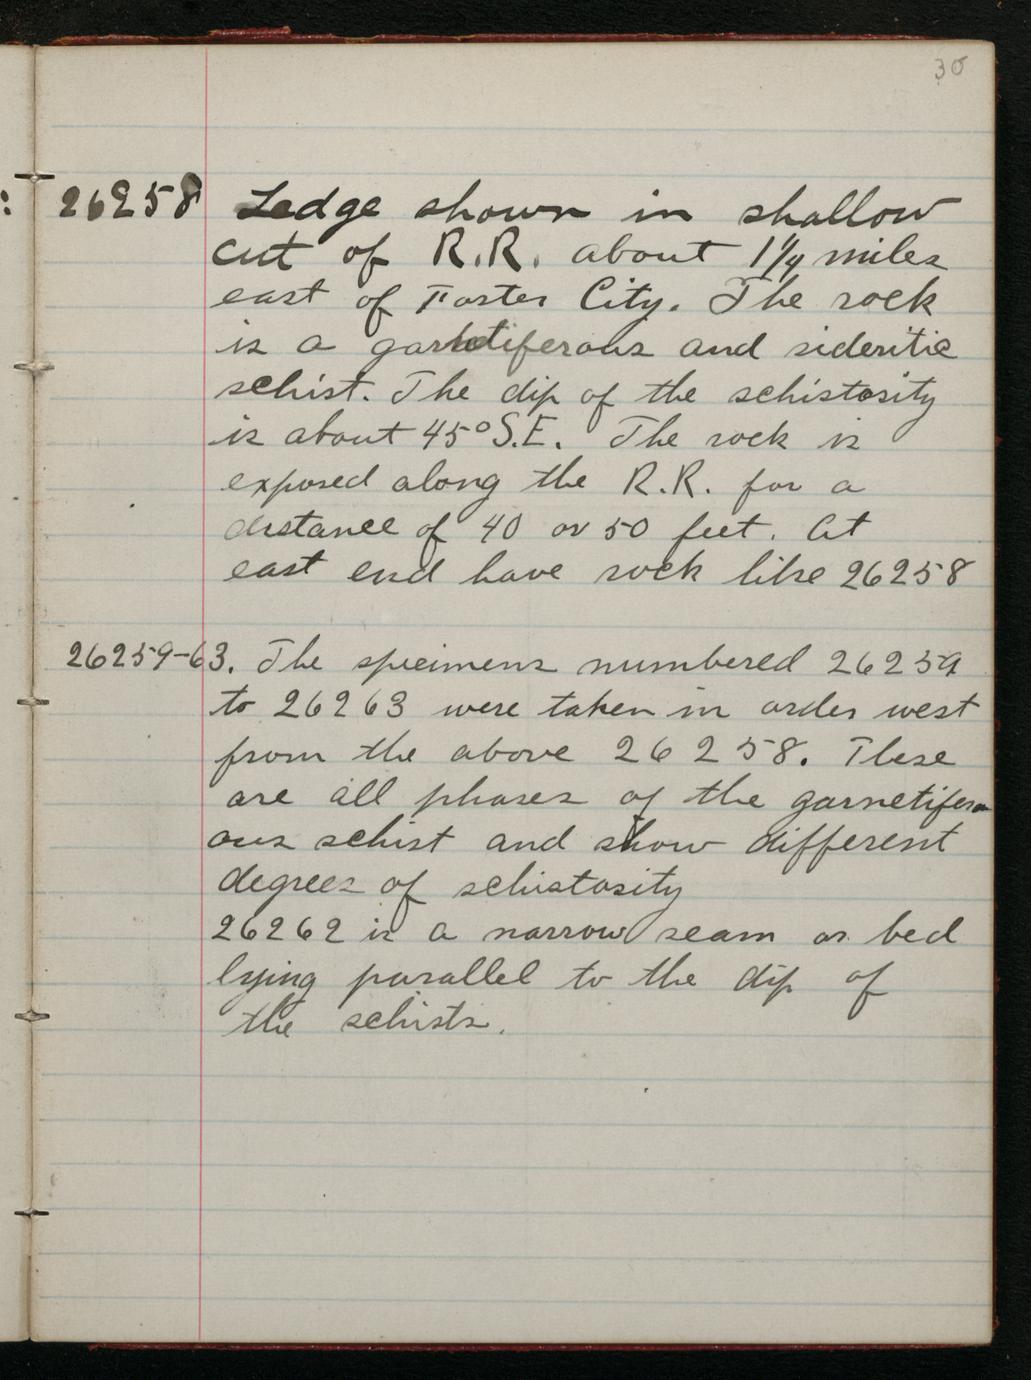 30
26258 Ledge shown in shallow
cut of R.R. about 1 1/4 miles
east of Foster City. The rock
is a garnetiferous and sideritic
schist. The dip of the schistosity
is about 45° S.E. The rock is
exposed along the R.R. for a
distance of 40 or 50 feet. At
east end have rock like 26258
26259-63. The specimens numbered 26259
to 26263 were taken in order west
from the above 26258. These
are all phases of the garnetifer
ous schist and show different
degrees of schistosity
26262 is a narrow seam or bed
lying parallel to the dip of
the schists.